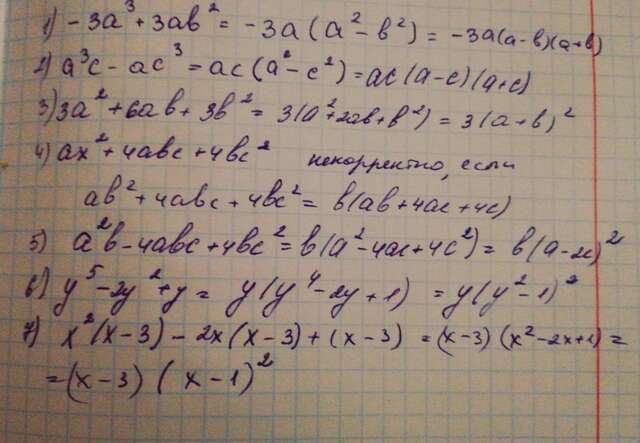 1) -3a³ + 3ab² = -3a(a² - b²) = -3a(a-b)(a+b)
2) a³c - ac³ = ac(a² - c²) = ac(a-c)(a+c)
3) 3a² + 6ab + 3b² = 3(a² + 2ab + b²) = 3(a+b)²
4) ax² + 4abc + 4bc² некорректно, если
ab² + 4abc + 4bc² = b(ab + 4ac + 4c)
5) a²b - 4abc + 4bc² = b(a² - 4ac + 4c²) = b(a-2c)²
6) y⁵ - 2y² + y = y(y⁴ - 2y + 1) = y(y² - 1)²
7) x²(x-3) - 2x(x-3) + (x-3) = (x-3)(x² - 2x + 1) =
= (x-3)(x-1)²